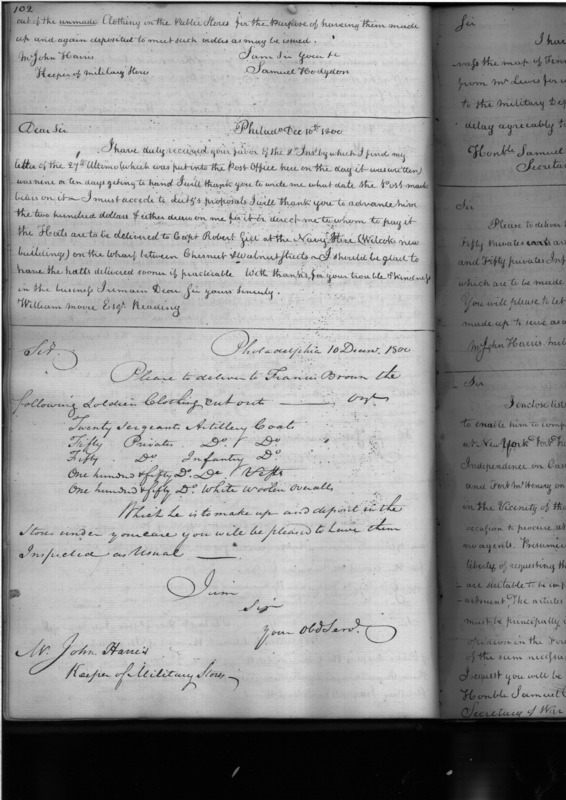 102
out of the unmade Clothing in the Public Stores for the purpose of having them made
up and again deposited to meet such orders as may be issued.
Mr John Harris I am Sir Your &c
Keeper of Military Store Samuel Hodgdon
Dear Sir Philada Dec 10th 1800
I have duly received your favor of the 8th Inst by which I find my
letter of the 27th Ultimo (which was put into the Post Office here on the day it was written)
was nine or ten days getting to hand I will thank you to write me what date the Post mark
bears on it I must accede to proposals I will thank you to advance him
the two hundred dollars & either draw on me for it or direct me to whom to pay it
the Hats are to be delivered to Capt Robert Gill at the Navy Store (Wilcocks new
buildings) on the Wharf between Chesnut & Walnut streets I should be glad to
have the hatts delivered sooner if practicable With thanks for your trouble & kindness
in the business I remain Dear Sir yours sincerely.
William Moore Esqr Reading
Sir. Philadelphia 10 Decemr. 1800
Please to deliver to Francis Brown the
following Soldiers Clothing cut out
Twenty Sergeants Artillery Coats
Fifty Privates Do. Do
Fifty Do Infantry Do
One hundred & fifty Do. Do Vests
One hundred & fifty Do. White Woolen overalls
Which he is to make up and deposit in the
Stores under your care you will be pleased to have them
Inspected as Usual
I am
Sir
Your Obd Servt.
Mr. John Harris
Keeper of Military Stores
Sir
I have
the map of
from Mr Lewis for
to the Military
delay agreeably to
Honble Samuel
Secretar
Sir
Please to deliver
Fifty Privates
and Fifty privates Inf
which are to be made
You will please to let
made up to serve as
Mr John Harris.
Sir
I enclose
to enable him to
at New York
Independence on
and Fort McHenry on
in the Vicinity of the
occasion to procure
no agents.
liberty of requesting th
are suitable to be
The articles
must be principally
of the sum
I request you will be
Honble Samuel
Secretary of War